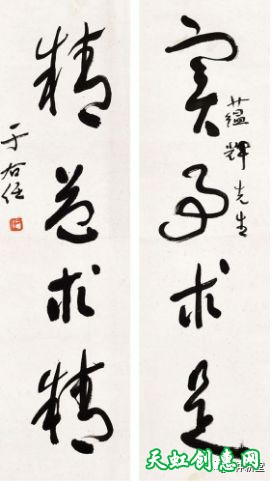 实事求是
蕴辉先生
精益求精
于右任
天虹创惠网